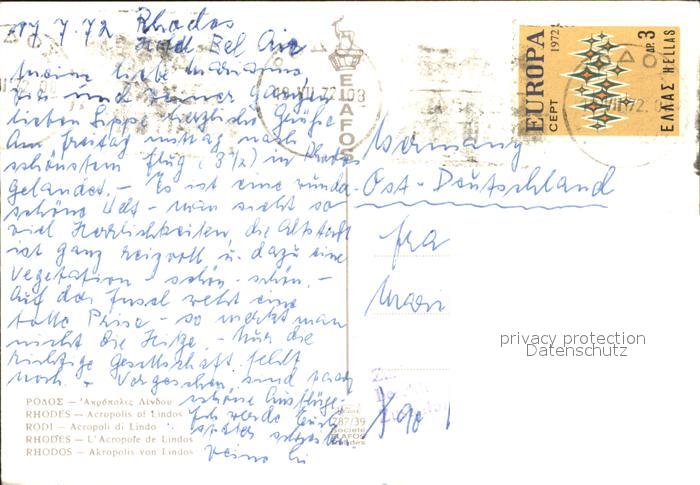 17.7.72 Rhodos
Hotel Bel Air
Meine liebe Marianne
Dir und Deiner ganzen
lieben Sippe herzliche Grüße
Am Freitag mittag nach
schönstem Flug (3½) in Rhodos
gelandet. – Es ist eine wunder-
schöne Welt – man sieht so
viel Herrlichkeiten, die Altstadt
ist ganz reizvoll u. dazu eine
Vegetation – schön, schön. –
Auf der Insel weht eine
tolle Prise – so merkt man
nicht die Hitze. – Nur die
richtige Gesellschaft fehlt
noch. – Vorgesehen sind paar
schöne Ausflüge.
Ich werde Euch
später
ΡΟΔΟΣ — Ἀκρόπολις Λίνδου
RHODES — Acropolis of Lindos
RODI — Acropoli di Lindo
RHODES — L'Acropole de Lindos
RHODOS — Akropolis von Lindos
ELAFOS
787/39
Societe
ELAFOS
Rhodes
EUROPA
CEPT 1972
ΔΡ. 3
ΕΛΛΑΣ HELLAS
Germany
Ost-Deutschland
Fra
Mari
privacy protection
Datenschutz
X 90